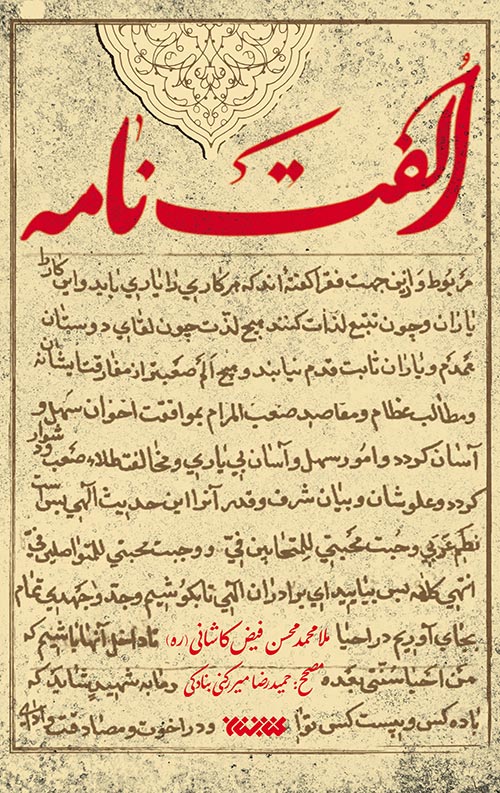 الفت نامه
مربوط و ازین جهت فقرا گفته‌اند که هر کاری را یاری باید و این کار را
یاران و چون تتبع لذات کنند هیچ لذت چون لقای دوستان
همدم و یاران ثابت قدم نیابند و هیچ الم صعبتر از مفارقت ایشان نه
و مطالب عظام و مقاصد صعب المرام بموافقت اخوان سهل و
آسان کردد و امور سهل و آسان بی یاری و مخالفت صعب و دشوار
کردد و علو شان و بیان شرف و قدر آنرا این حدیث الهی بس است
وجبت محبتی للمتحابین فی و وجبت محبتی للمتواصلین فی
انتهی کلامه پس بیایید ای برادران الهی تا بکوشیم و جد و جهدی تمام
بجای آوریم در احیا تا داخل آنها باشیم که
ملا محمد محسن فیض کاشانی (ره)
من احیا سنتی بعده و ما به شهید شاید که
مصحح: حمیدرضا میررکنی بنادکی
و در اخوت و مصادقت
کتابستان